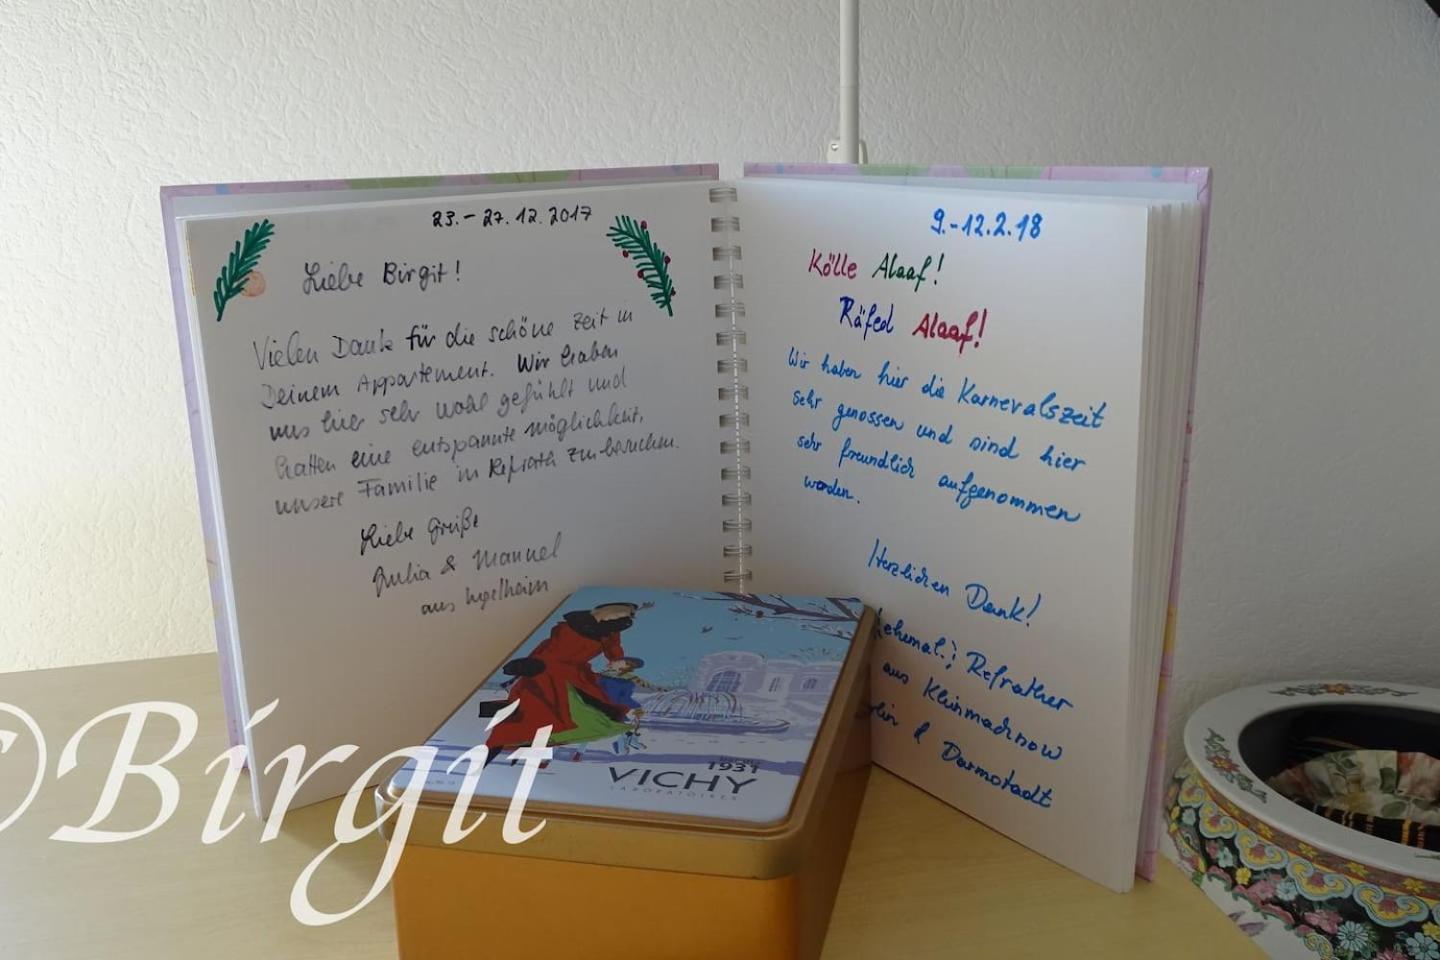 23.-27.12.2017
Liebe Birgit!
Vielen Dank für die schöne Zeit in
Deinem Appartement. Wir haben
uns hier sehr wohl gefühlt und
hatten eine entspannte Möglichkeit,
unsere Familie in Refrath zu besuchen.
Liebe Grüße
Julia & Manuel
aus Ingelheim
9.-12.2.18
Kölle Alaaf!
Räfed Alaaf!
Wir haben hier die Karnevalszeit
sehr genossen und sind hier
sehr freundlich aufgenommen
worden.
Herzlichen Dank!
(ehemal.) Refrather
aus Kleinmachnow
& Darmstadt
1931
VICHY
LABORATOIRES
©Birgit